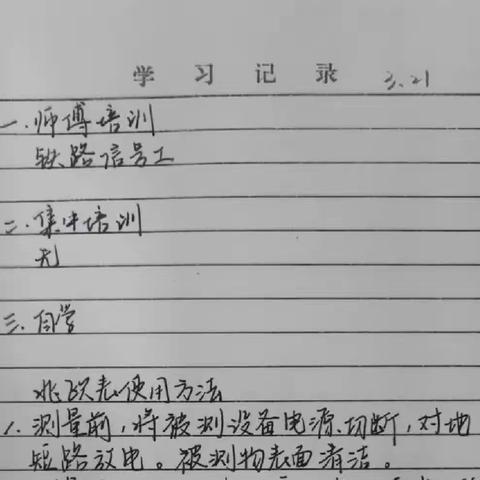 学习记录 3.21
一.师傅培训
铁路信号工
二.集中培训
无
三.自学
兆欧表使用方法
1.测量前,将被测设备电源切断,对地
短路放电。被测物表面清洁。